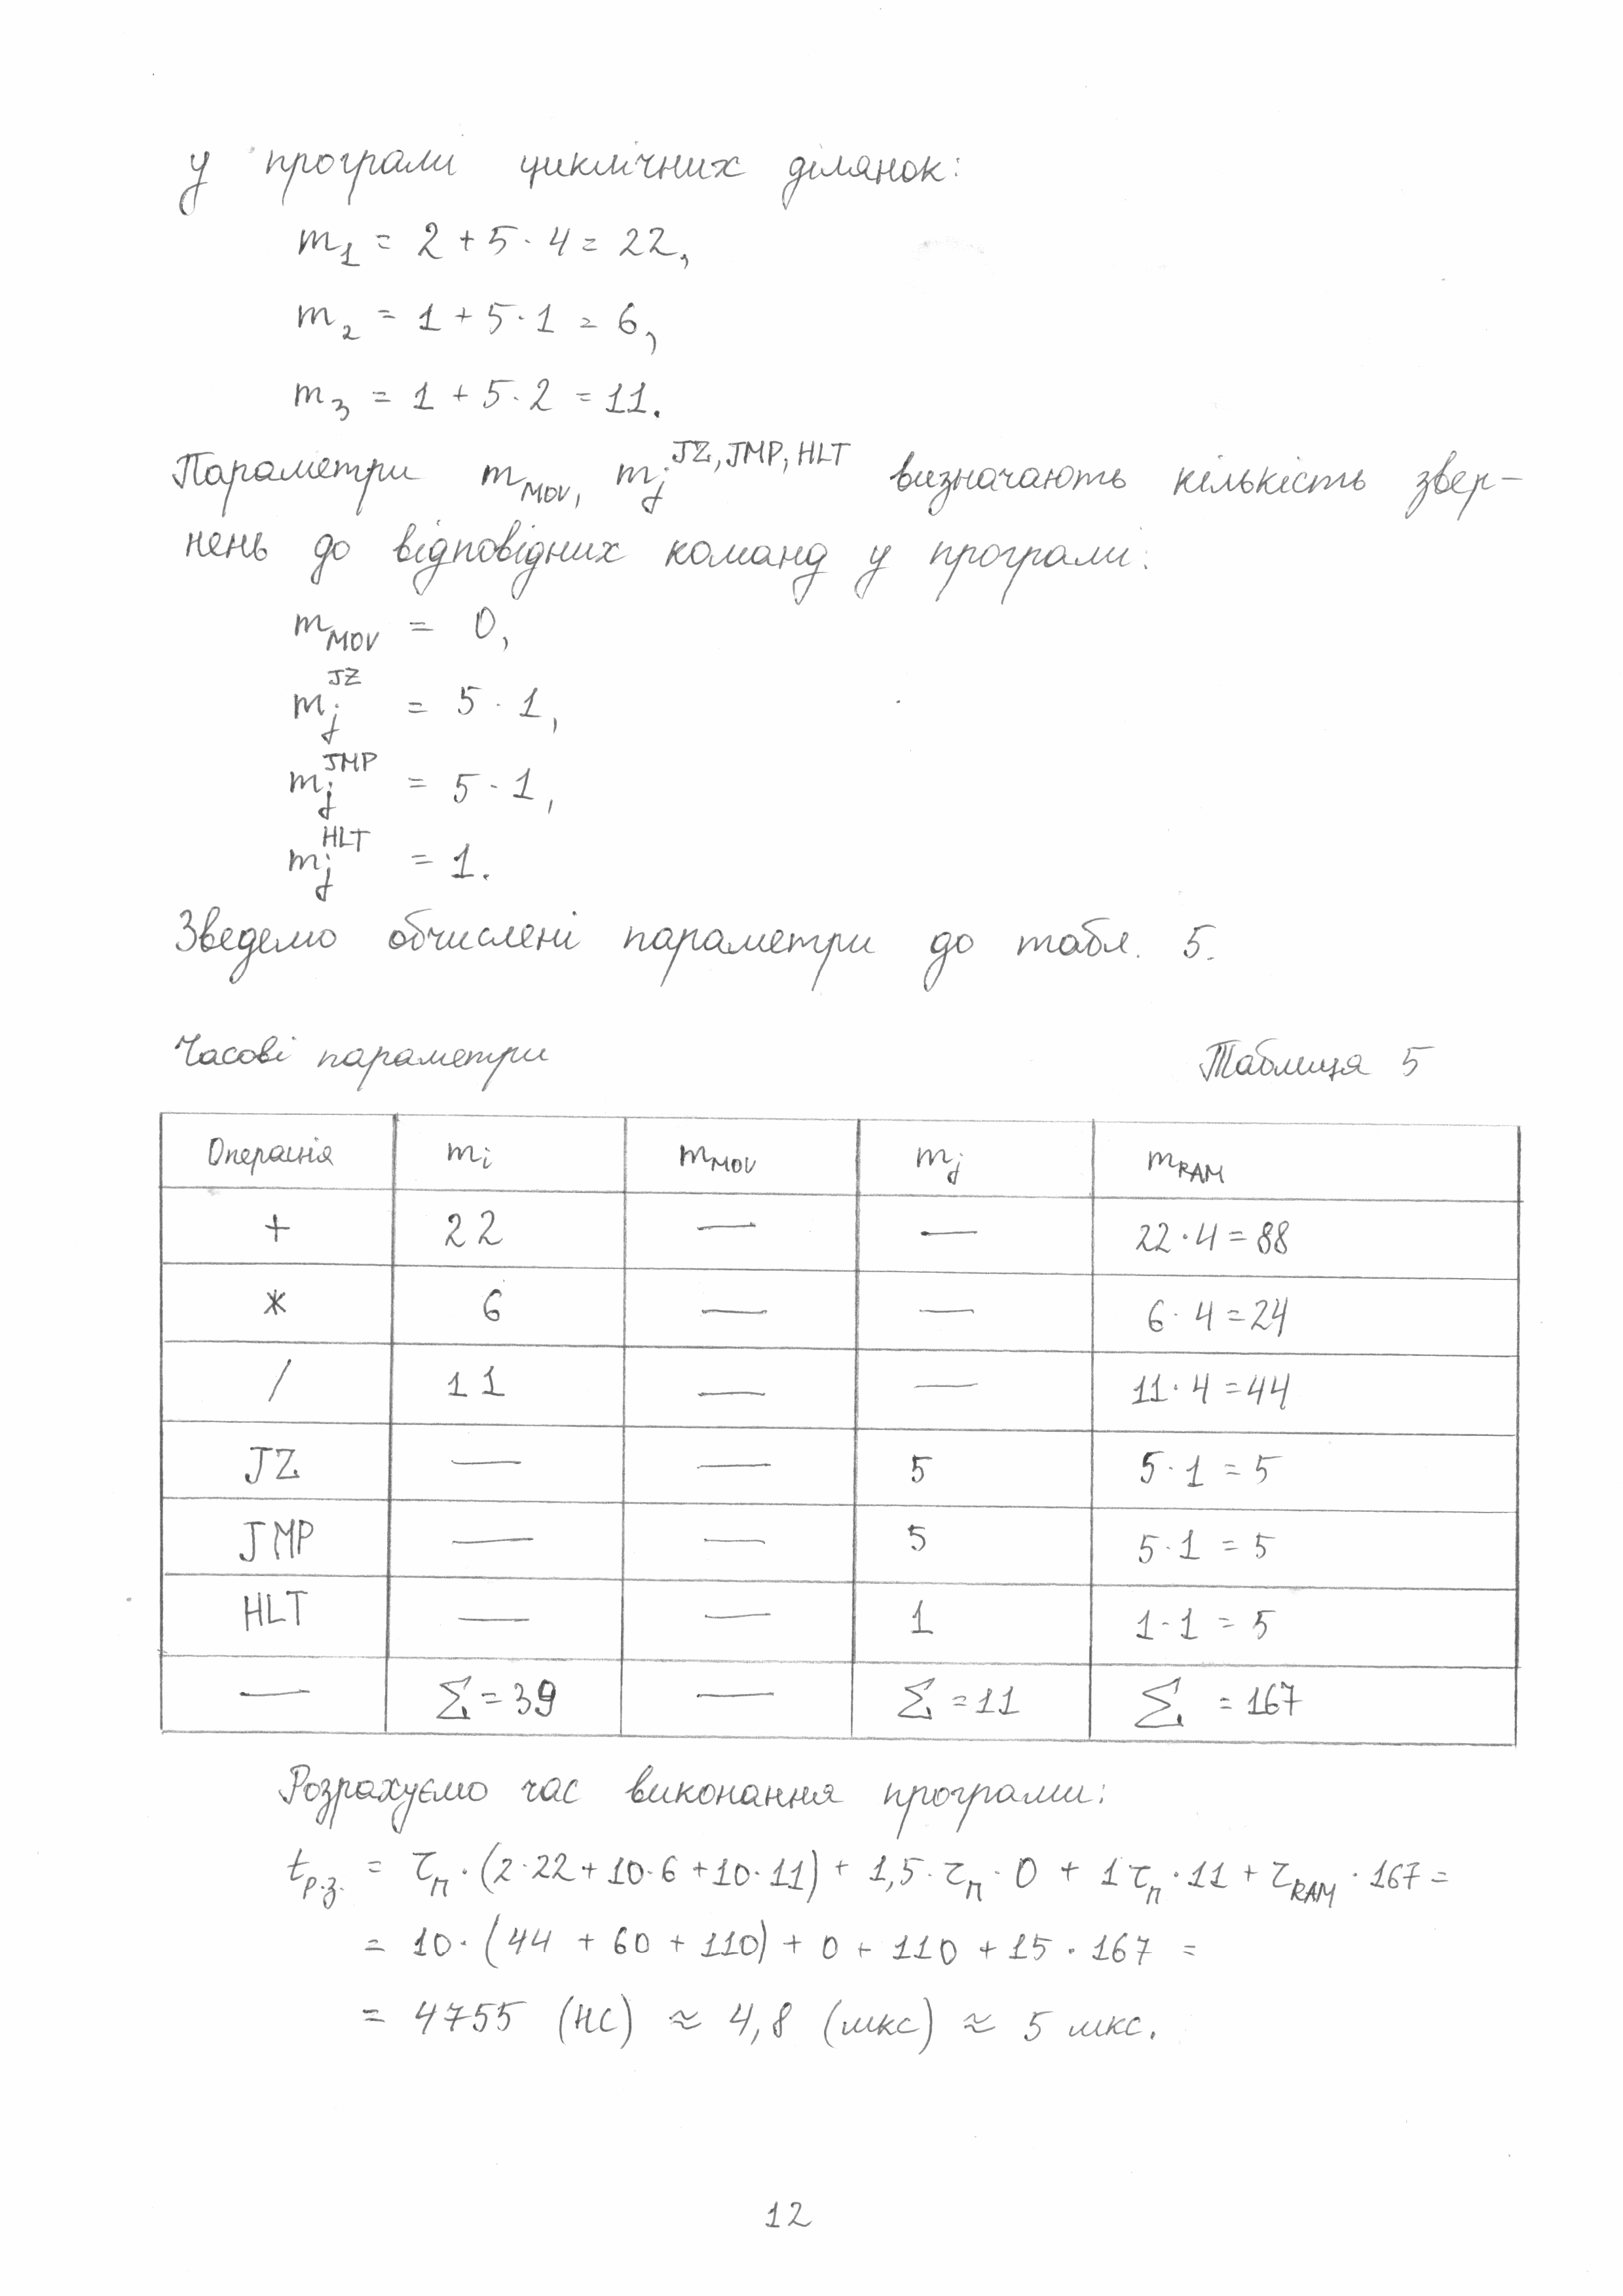 у програмі циклічних ділянок:
m₁ = 2 + 5 · 4 = 22,
m₂ = 1 + 5 · 1 = 6,
m₃ = 1 + 5 · 2 = 11.
Параметри m_MOV, m_j^JZ, JMP, HLT визначають кількість звер-
нень до відповідних команд у програмі:
m_MOV = 0,
m_j^JZ = 5 · 1,
m_j^JMP = 5 · 1,
m_j^HLT = 1.
Зведемо обчислені параметри до табл. 5.
Часові параметри Таблиця 5
Операція m_i m_MOV m_j m_RAM
+ 22 — — 22 · 4 = 88
* 6 — — 6 · 4 = 24
/ 11 — — 11 · 4 = 44
JZ — — 5 5 · 1 = 5
JMP — — 5 5 · 1 = 5
HLT — — 1 1 · 1 = 5
— Σ = 39 — Σ = 11 Σ = 167
Розрахуємо час виконання програми:
t_р.з. = τ_п · (2 · 22 + 10 · 6 + 10 · 11) + 1,5 · τ_п · 0 + 1 τ_п · 11 + τ_RAM · 167 =
= 10 · (44 + 60 + 110) + 0 + 110 + 15 · 167 =
= 4755 (нс) ≈ 4,8 (мкс) ≈ 5 мкс.
12